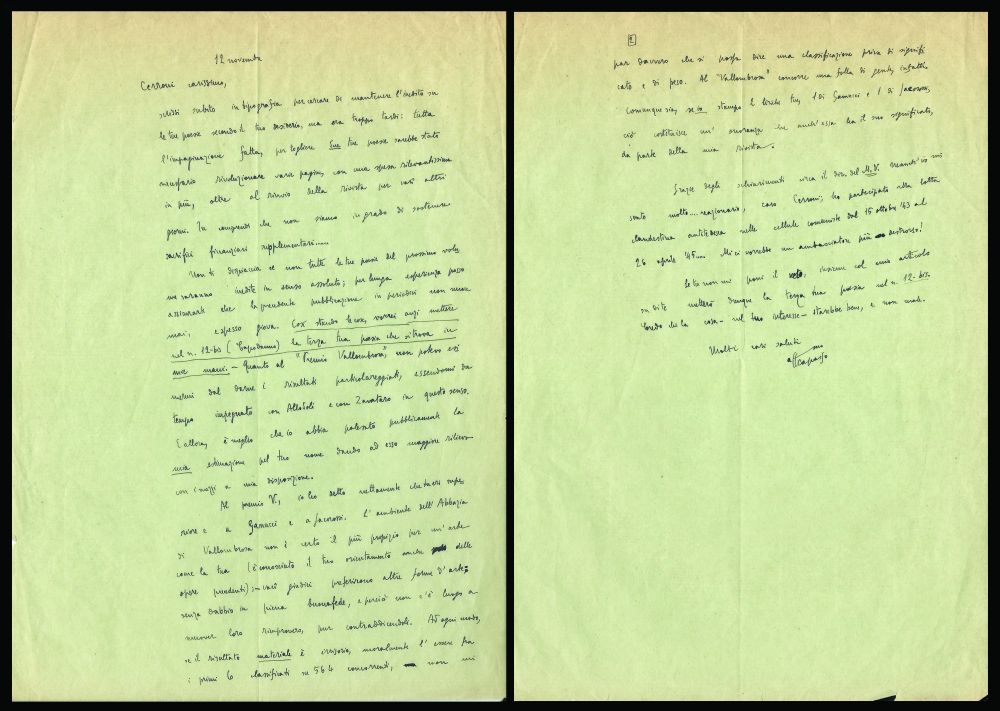 12 novembre
Cerroni carissimo,
scrissi subito in tipografia per cercare di mantenere l'inedito su
le tue poesie secondo il tuo desiderio, ma era troppo tardi: tutta
l'impaginazione fatta, per togliere due tue poesie sarebbe stato
necessario rivoluzionare varie pagine, con una spesa rilevantissima
in più, oltre al rinvio della rivista per vari altri
giorni. Tu comprendi che non siamo in grado di sostenere
sacrifici finanziari supplementari.....
Non ti dispiaccia se non tutte le tue poesie del prossimo volu
me saranno inedite in senso assoluto; per lunga esperienza posso
assicurarti che la precedente pubblicazione in periodici non nuoce
mai, e spesso giova. Così stando le cose, vorrei anzi mettere
nel n. 12-bis (Capodanno) la terza tua poesia che si trova in
mie mani. - Quanto al "Premio Vallombrosa" non potevo esi
mermi dal darne i risultati particolareggiati, essendomi da
tempo impegnato con Allodoli e con Zavataro in questo senso.
E allora, è meglio che io abbia palesato pubblicamente la
mia estimazione pel tuo nome dando ad esso maggiore rilievo
con i mezzi a mia disposizione.
Al premio V., io ho detto nettamente che tu eri supe
riore e a Ganucci e a Jacorossi. L'ambiente dell'Abbazia
di Vallombrosa non è certo il più propizio per un'arte
come la tua (è conosciuto il tuo orientamento anche delle
opere precedenti); - vari giudici preferirono altre forme d'arte,
senza dubbio in piena buonafede, e perciò non c'è luogo a
muover loro rimprovero, pur contraddicendoli. Ad ogni modo,
se il risultato materiale è irrisorio, moralmente l'essere fra
i primi 6 classificati su 564 concorrenti, non mi
2
par davvero che si possa dire una classificazione priva di signifi
cato e di peso. Al "Vallombrosa" concorre una folla di gente, infatti.
Comunque sia, se io stampo 2 liriche tue, 1 di Ganucci e 1 di Jacorossi,
ciò costituisce un'onoranza che anch'essa ha il suo significato,
da parte della mia rivista.
Grazie degli schiarimenti circa il dir. del M.V. Neanch'io mi
sento molto... reazionario, caro Cerroni; ho partecipato alla lotta
clandestina antitedesca nelle cellule comuniste dal 15 ottobre '43 al
26 aprile '45.... Mi ci vorrebbe un ambasciatore più destroso!
Se tu non mi poni il veto, insieme col mio articolo
su di te metterò dunque la terza tua poesia nel n. 12-bis.
Credo che la cosa - nel tuo interesse - starebbe bene, e non male.
Molti cari saluti
tuo
aff Capasso